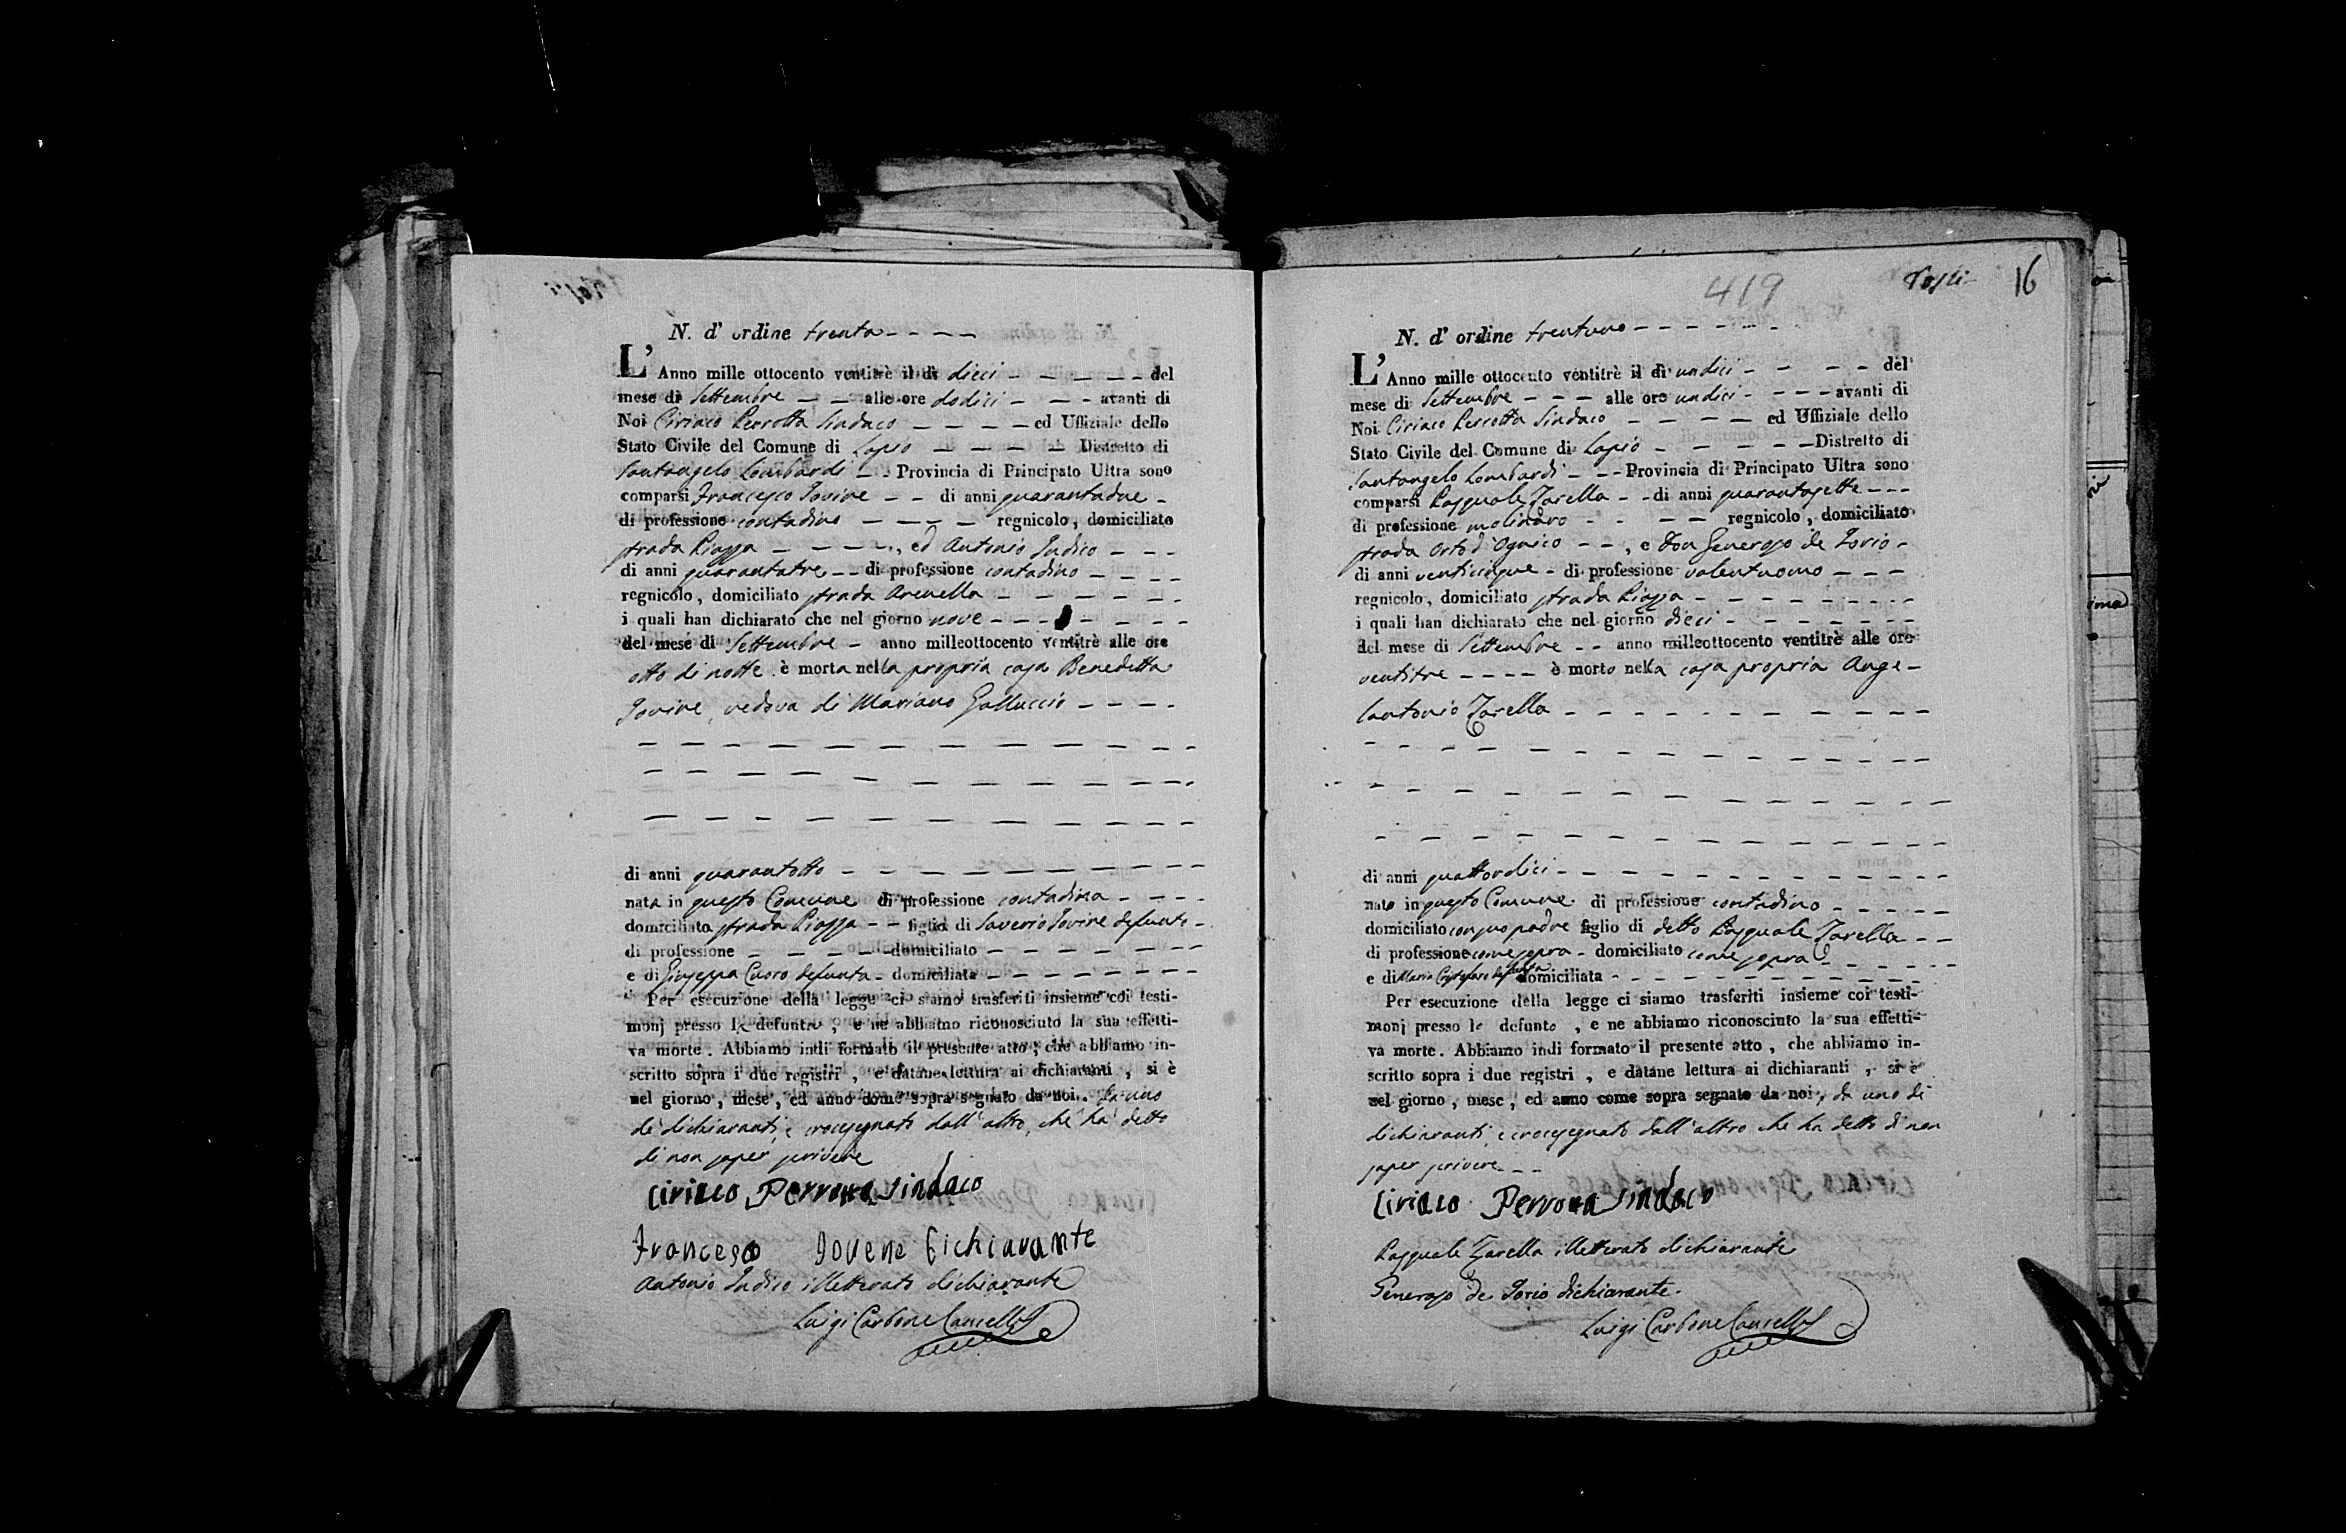 N. d' ordine trenta - - - -
L' Anno mille ottocento ventitrè il dì dieci - - - - - del
mese di Settembre - - alle ore dodici - - - avanti di
Noi Ciriaco Perrotta Sindaco - - - - ed Uffiziale dello
Stato Civile del Comune di Lapio - - - - - Distretto di
Santangelo Lombardi - - Provincia di Principato Ultra sono
comparsi Francesco Jovine - - di anni quarantadue -
di professione contadino - - - - regnicolo, domiciliato
strada Piazza - - - - , ed Antonio Indico - - -
di anni quarantatre - - di professione contadino - - - -
regnicolo, domiciliato strada Arenella - - - - - -
i quali han dichiarato che nel giorno nove - - - - - - -
del mese di Settembre - anno milleottocento ventitrè alle ore
otto di notte è morta nella propria casa Benedetta
Jovine, vedova di Mariano Galluccio - - - -
di anni quarantotto - - - - - - - - -
nata in questo Comune di professione contadina - - - -
domiciliata strada Piazza - - figlia di Saverio Jovine defunto -
di professione - - - - - domiciliato - - - - - -
e di Giuseppa Cuoro defunta - domiciliata - - - - - -
Per esecuzione della legge ci siamo trasferiti insieme coi testi-
monj presso la defunta , e ne abbiamo riconosciuto la sua effetti-
va morte. Abbiamo indi formato il presente atto, che abbiamo in-
scritto sopra i due registri , e datane lettura ai dichiaranti , si è
nel giorno, mese, ed anno come sopra segnato da noi, da uno
de' dichiaranti, e crocesegnato dall'altro, che ha detto
di non saper scrivere
Ciriaco Perrotta Sindaco
Francesco Jovene dichiarante
Antonio Indico illetterato dichiarante
Luigi Carbone Cancell.
419
16
N. d' ordine trentuno - - - - - - -
L' Anno mille ottocento ventitrè il dì undici - - - - del
mese di Settembre - - - alle ore undici - - - - avanti di
Noi Ciriaco Perrotta Sindaco - - - - ed Uffiziale dello
Stato Civile del Comune di Lapio - - - - - Distretto di
Santangelo Lombardi - - - Provincia di Principato Ultra sono
comparsi Pasquale Zarella - - di anni quarantasette - - -
di professione molinaro - - - - regnicolo, domiciliato
strada Orto d'Ognico - - , e Don Generoso de Jorio -
di anni venticinque - di professione valentuomo - - -
regnicolo, domiciliato strada Piazza - - - - - - - -
i quali han dichiarato che nel giorno dieci - - - - - - -
del mese di Settembre - - anno milleottocento ventitrè alle ore
ventitre - - - - è morto nella casa propria Ange-
lantonio Zarella - - - - - - - - - -
di anni quattordici - - - - - - - - - -
nato in questo Comune di professione contadino - - - - -
domiciliato con suo padre figlio di detto Pasquale Zarella - -
di professione come sopra - domiciliato come sopra - - - - -
e di Maria defunta domiciliata - - - - - - - -
Per esecuzione della legge ci siamo trasferiti insieme coi testi-
monj presso lo defunto , e ne abbiamo riconosciuto la sua effetti-
va morte. Abbiamo indi formato il presente atto , che abbiamo in-
scritto sopra i due registri , e datane lettura ai dichiaranti , si è
nel giorno, mese, ed anno come sopra segnato da noi, da uno di
dichiaranti, e crocesegnato dall'altro che ha detto di non
saper scrivere - -
Ciriaco Perrotta Sindaco
Pasquale Zarella illetterato dichiarante
Generoso de Jorio dichiarante.
Luigi Carbone Cancell.